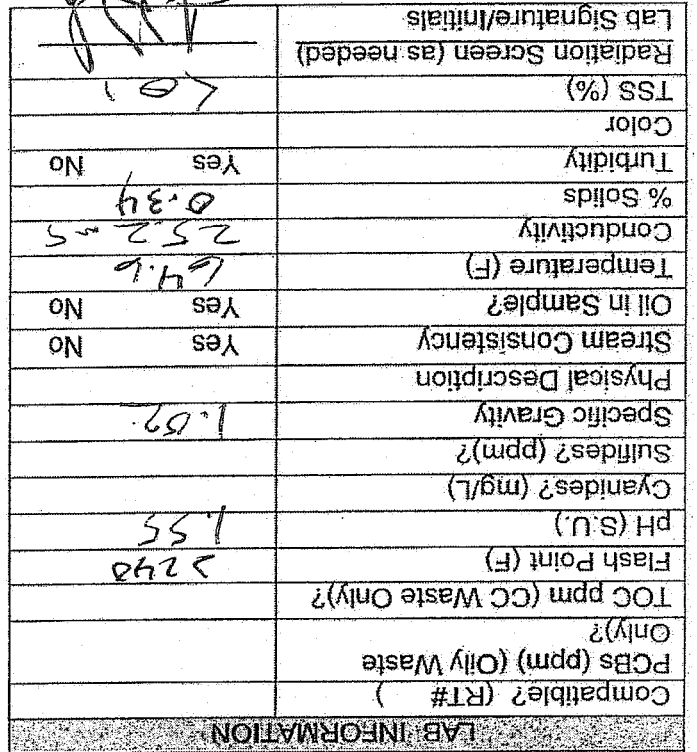 LAB INFORMATION
Compatible? (RT# )
PCBs (ppm) (Oily Waste
Only)?
TOC ppm (CC Waste Only)?
Flash Point (F) >240
pH (S.U.) 1.55
Cyanides? (mg/L)
Sulfides? (ppm)?
Specific Gravity 1.02
Physical Description
Stream Consistency Yes No
Oil in Sample? Yes No
Temperature (F) 64.6
Conductivity 25.2 mS
% Solids 0.34
Turbidity Yes No
Color
TSS (%)
Radiation Screen (as needed)
Lab Signature/Initials